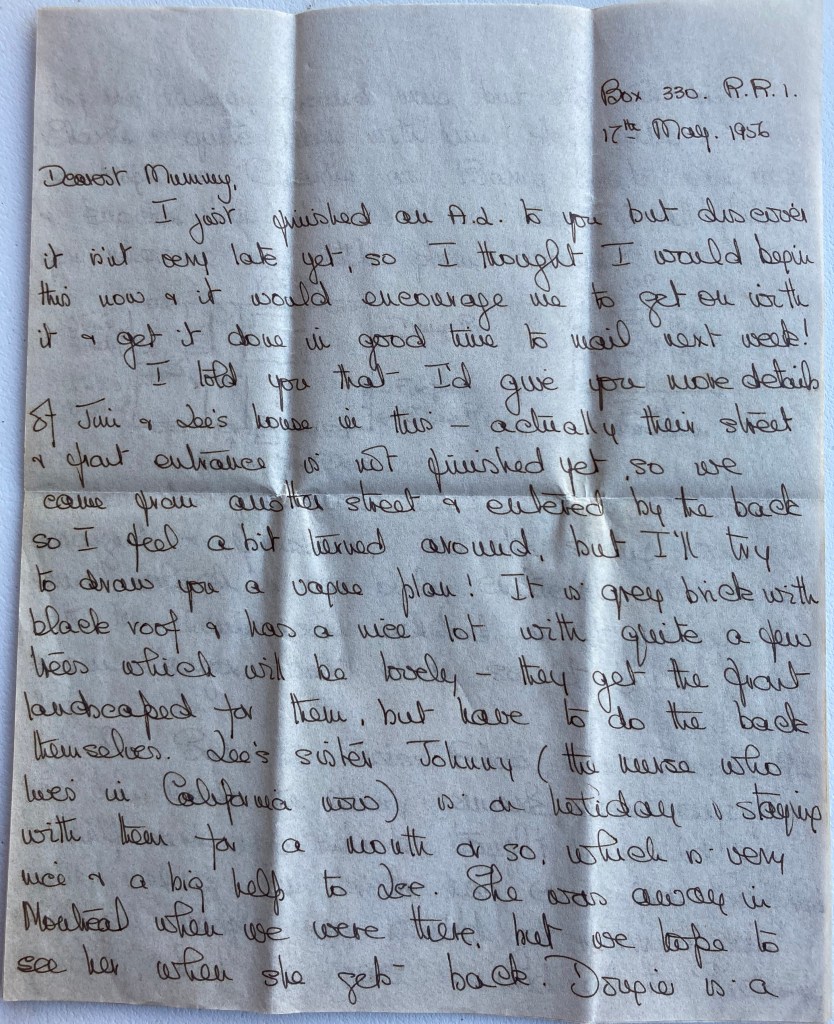 Box 330. R.R.1.
17th May. 1956
Dearest Mummy,
I just finished an A.L. to you but discover
it isn't very late yet, so I thought I would begin
this now & it would encourage me to get on with
it & get it done in good time to mail next week!
I told you that I'd give you more details
of Jim & Lee's house in this – actually their street
& front entrance is not finished yet, so we
came from another street & entered by the back
so I feel a bit turned around, but I'll try
to draw you a vague plan! It is grey brick with
black roof & has a nice lot with quite a few
trees which will be lovely – they get the front
landscaped for them, but have to do the back
themselves. Lee's sister Johnny (the nurse who
lives in California now) is on holiday & staying
with them for a month or so, which is very
nice & a big help to Lee. She was away in
Montreal when we were there, but we hope to
see her when she gets back. Dougie is a